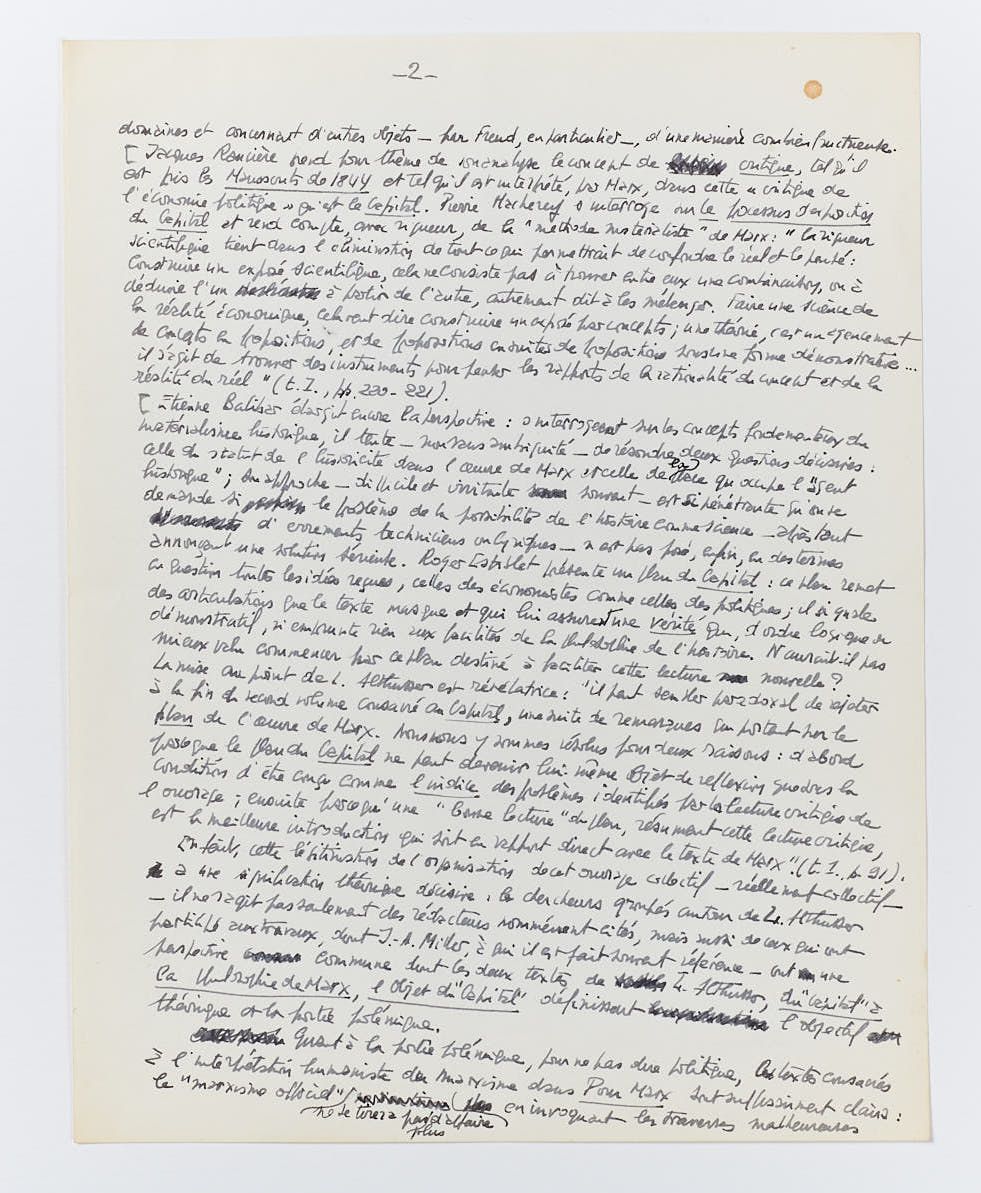 — 2 —
domaines et concernant d'autres objets — par Freud, en particulier —, d'une manière combien fructueuse.
[ Jacques Rancière prend pour thème de son analyse le concept de critique, tel qu'il
est pris les Manuscrits de 1844 et tel qu'il est interprété, par Marx, dans cette « critique de
l'économie politique » qu'est le Capital. Pierre Macherey s'interroge sur le processus d'exposition
du Capital et rend compte, avec rigueur, de la "méthode matérialiste" de Marx : "la rigueur
scientifique tient dans l'élimination de tout ce qui permettrait de confondre le réel et le pensé :
Construire un exposé scientifique, cela ne consiste pas à trouver entre eux une combinaison, ou à
déduire l'un à partir de l'autre, autrement dit à les mélanger. Faire une science de
la réalité économique, cela veut dire construire un exposé par concepts ; une théorie, c'est un agencement
de concepts en propositions, et de propositions en suites de propositions sous une forme démonstrative ...
il s'agit de trouver des instruments pour penser les rapports de la rationalité du concept et de la
réalité du réel" (t. I., pp. 220-221).
[ Etienne Balibar élargit encore la perspective : s'interrogeant sur les concepts fondamentaux du
matérialisme historique, il tente — non sans ambiguité — de résoudre deux questions décisives :
celle du statut de l'historicité dans l'œuvre de Marx et celle de la place qu'occupe l'"agent
historique" ; son approche — difficile et irritante souvent — est si pénétrante qu'on se
demande si le problème de la possibilité de l'histoire comme science — après tant
d'errements techniciens ou lyriques — n'est pas posé, enfin, en des termes
annonçant une solution sérieuse. Roger Establet présente un plan du Capital : ce plan remet
en question toutes les idées reçues, celles des économistes comme celles des politiques ; il signale
des articulations que le texte masque et qui lui assurent une vérité qui, d'ordre logique ou
démonstratif, n'emprunte rien aux facilités de la philosophie de l'histoire. N'aurait-il pas
mieux valu commencer par ce plan destiné à faciliter cette lecture nouvelle ?
La mise au point de L. Althusser est révélatrice : "il peut sembler paradoxal de rejeter
à la fin du second volume consacré au Capital, une suite de remarques qui portent sur le
plan de l'œuvre de Marx. Nous nous y sommes résolus pour deux raisons : d'abord
parce que le plan du Capital ne peut devenir lui-même objet de réflexion que dans la
condition d'être conçu comme l'indice des problèmes identifiés par la lecture critique de
l'ouvrage ; ensuite parce qu'une "bonne lecture" du plan, résumant cette lecture critique,
est la meilleure introduction qui soit en rapport direct avec le texte de Marx". (t. I., p 91).
En fait, cette légitimation de l'organisation de cet ouvrage collectif — réellement collectif —
a une signification théorique décisive : les chercheurs groupés autour de L. Althusser
— il ne s'agit pas seulement des rédacteurs nommément cités, mais aussi de ceux qui ont
participé aux travaux, dont J.-A. Miller, à qui il est fait souvent référence — ont une
perspective commune dont les deux textes de L. Althusser, du "Capital" à
la philosophie de Marx, l'objet du "Capital" définissent l'objectif
théorique et la portée polémique.
Quant à la portée polémique, pour ne pas dire politique, les textes consacrés
à l'interprétation humaniste du marxisme dans Pour Marx sont suffisamment clairs :
le "marxisme officiel" en invoquant les traverses malheureuses
ne se tirera pas d'affaire
plus